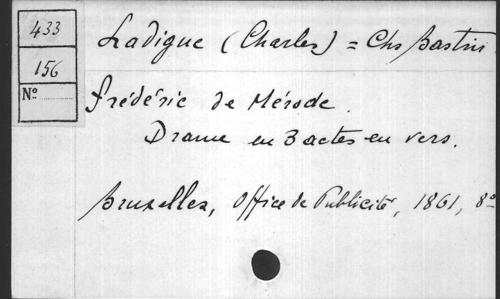 433
156
Nº
Ladigue (Charles) = Chs Bastin
Frédéric de Mérode.
Drame en 3 actes en vers.
Bruxelles, Office de Publicité, 1861, 8º